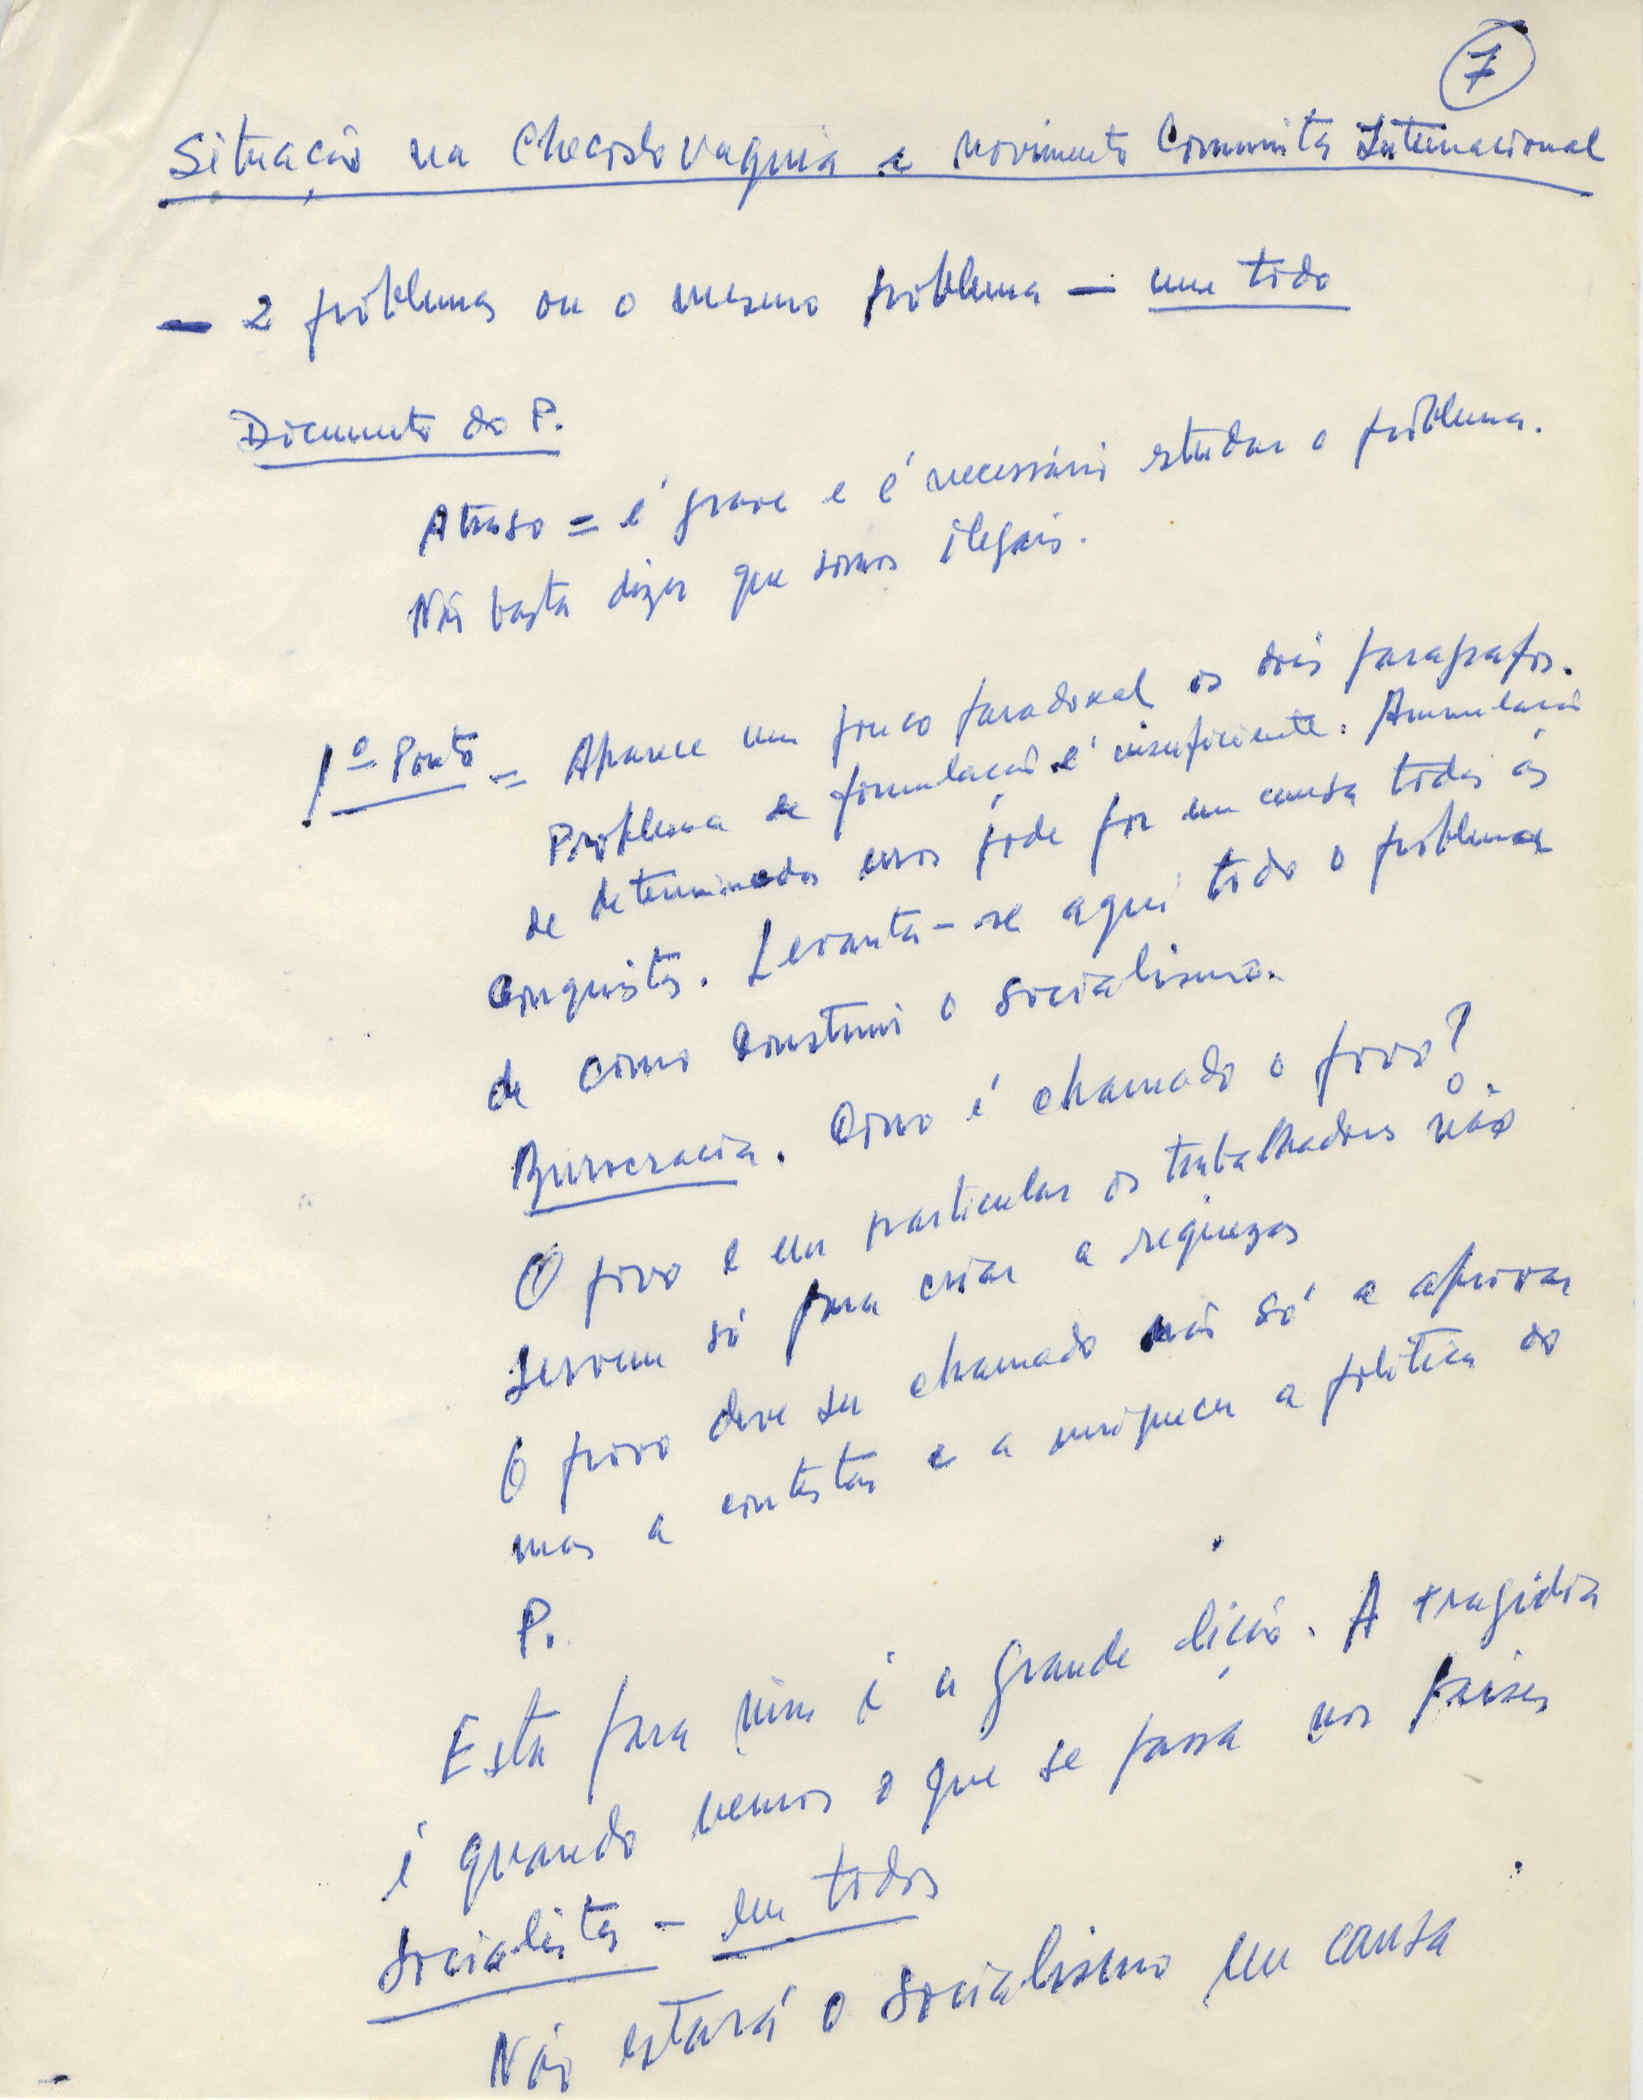 7
Situação na Checoslovaquia e Movimento Comunista Internacional
- 2 problemas ou o mesmo problema - um todo
Documento do P.
Atraso = é grave e é necessário estudar o problema.
Não basta dizer que somos ilegais.
1º Ponto = Aparece um pouco paradoxal os dois paragrafos.
Problema de formulação é insuficiente. Acumulação
de determinados erros pode por em causa todas as
conquistas. Levanta-se aqui todo o problema
de como construir o socialismo.
Burocracia. Como é chamado o povo?
O povo e em particular os trabalhadores não
servem só para criar a riquezas
O povo deve ser chamado não só a aprovar
mas a contestar e a enriquecer a politica do
P.
Esta para mim é a grande lição. A tragédia
é quando vemos o que se passa nos paises
socialistas - em todos
Não estará o socialismo em causa